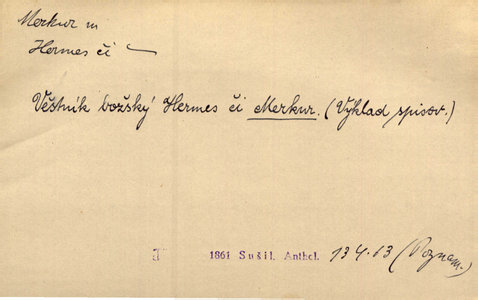 Merkur m
Hermes či —
Věstník božský Hermes či Merkur. (Výklad spisov.)
T 1861 Sušil. Anthol. 134.63 (Poznam.)